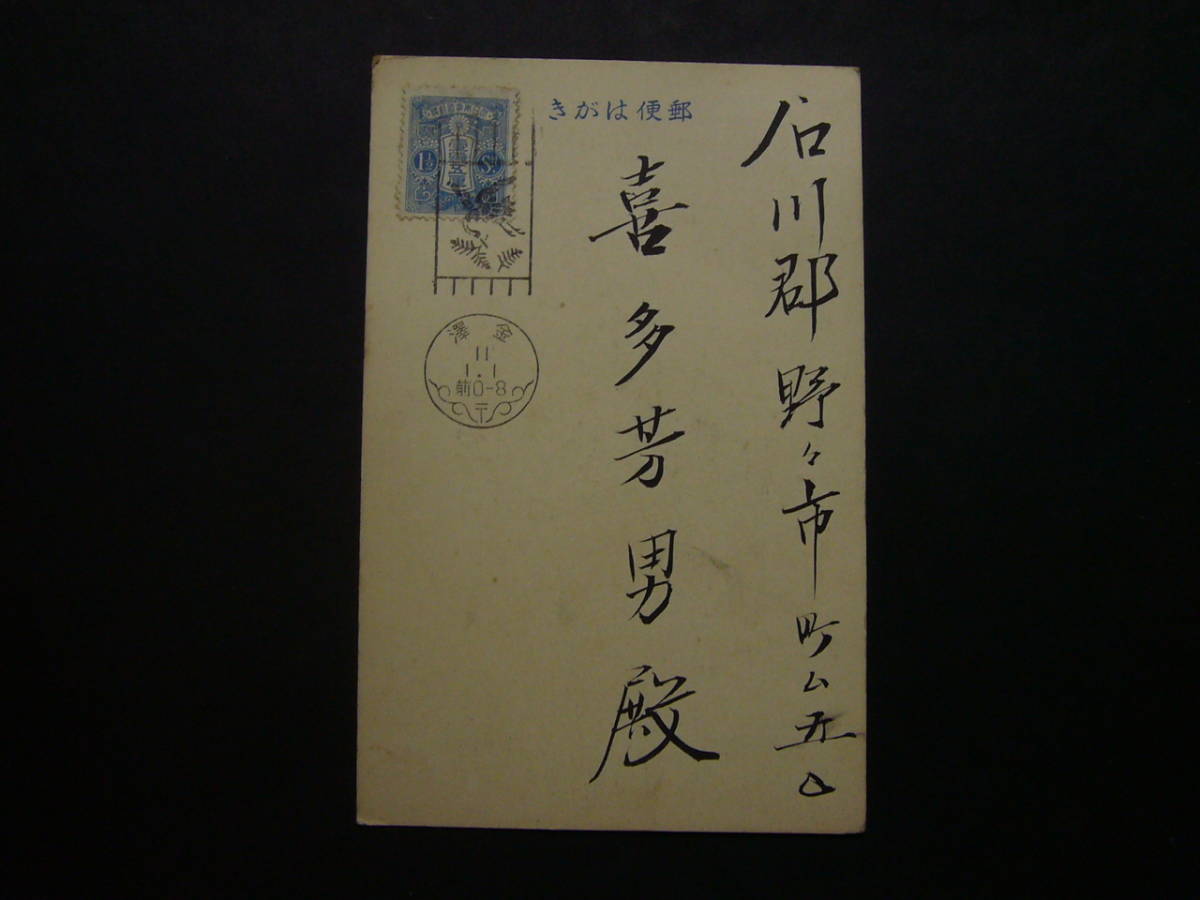 郵便はがき
石川郡野々市町ム五〇
喜多芳男殿
1½ Sn.
壹錢五厘
金澤
11
1.1
前0-8
〒